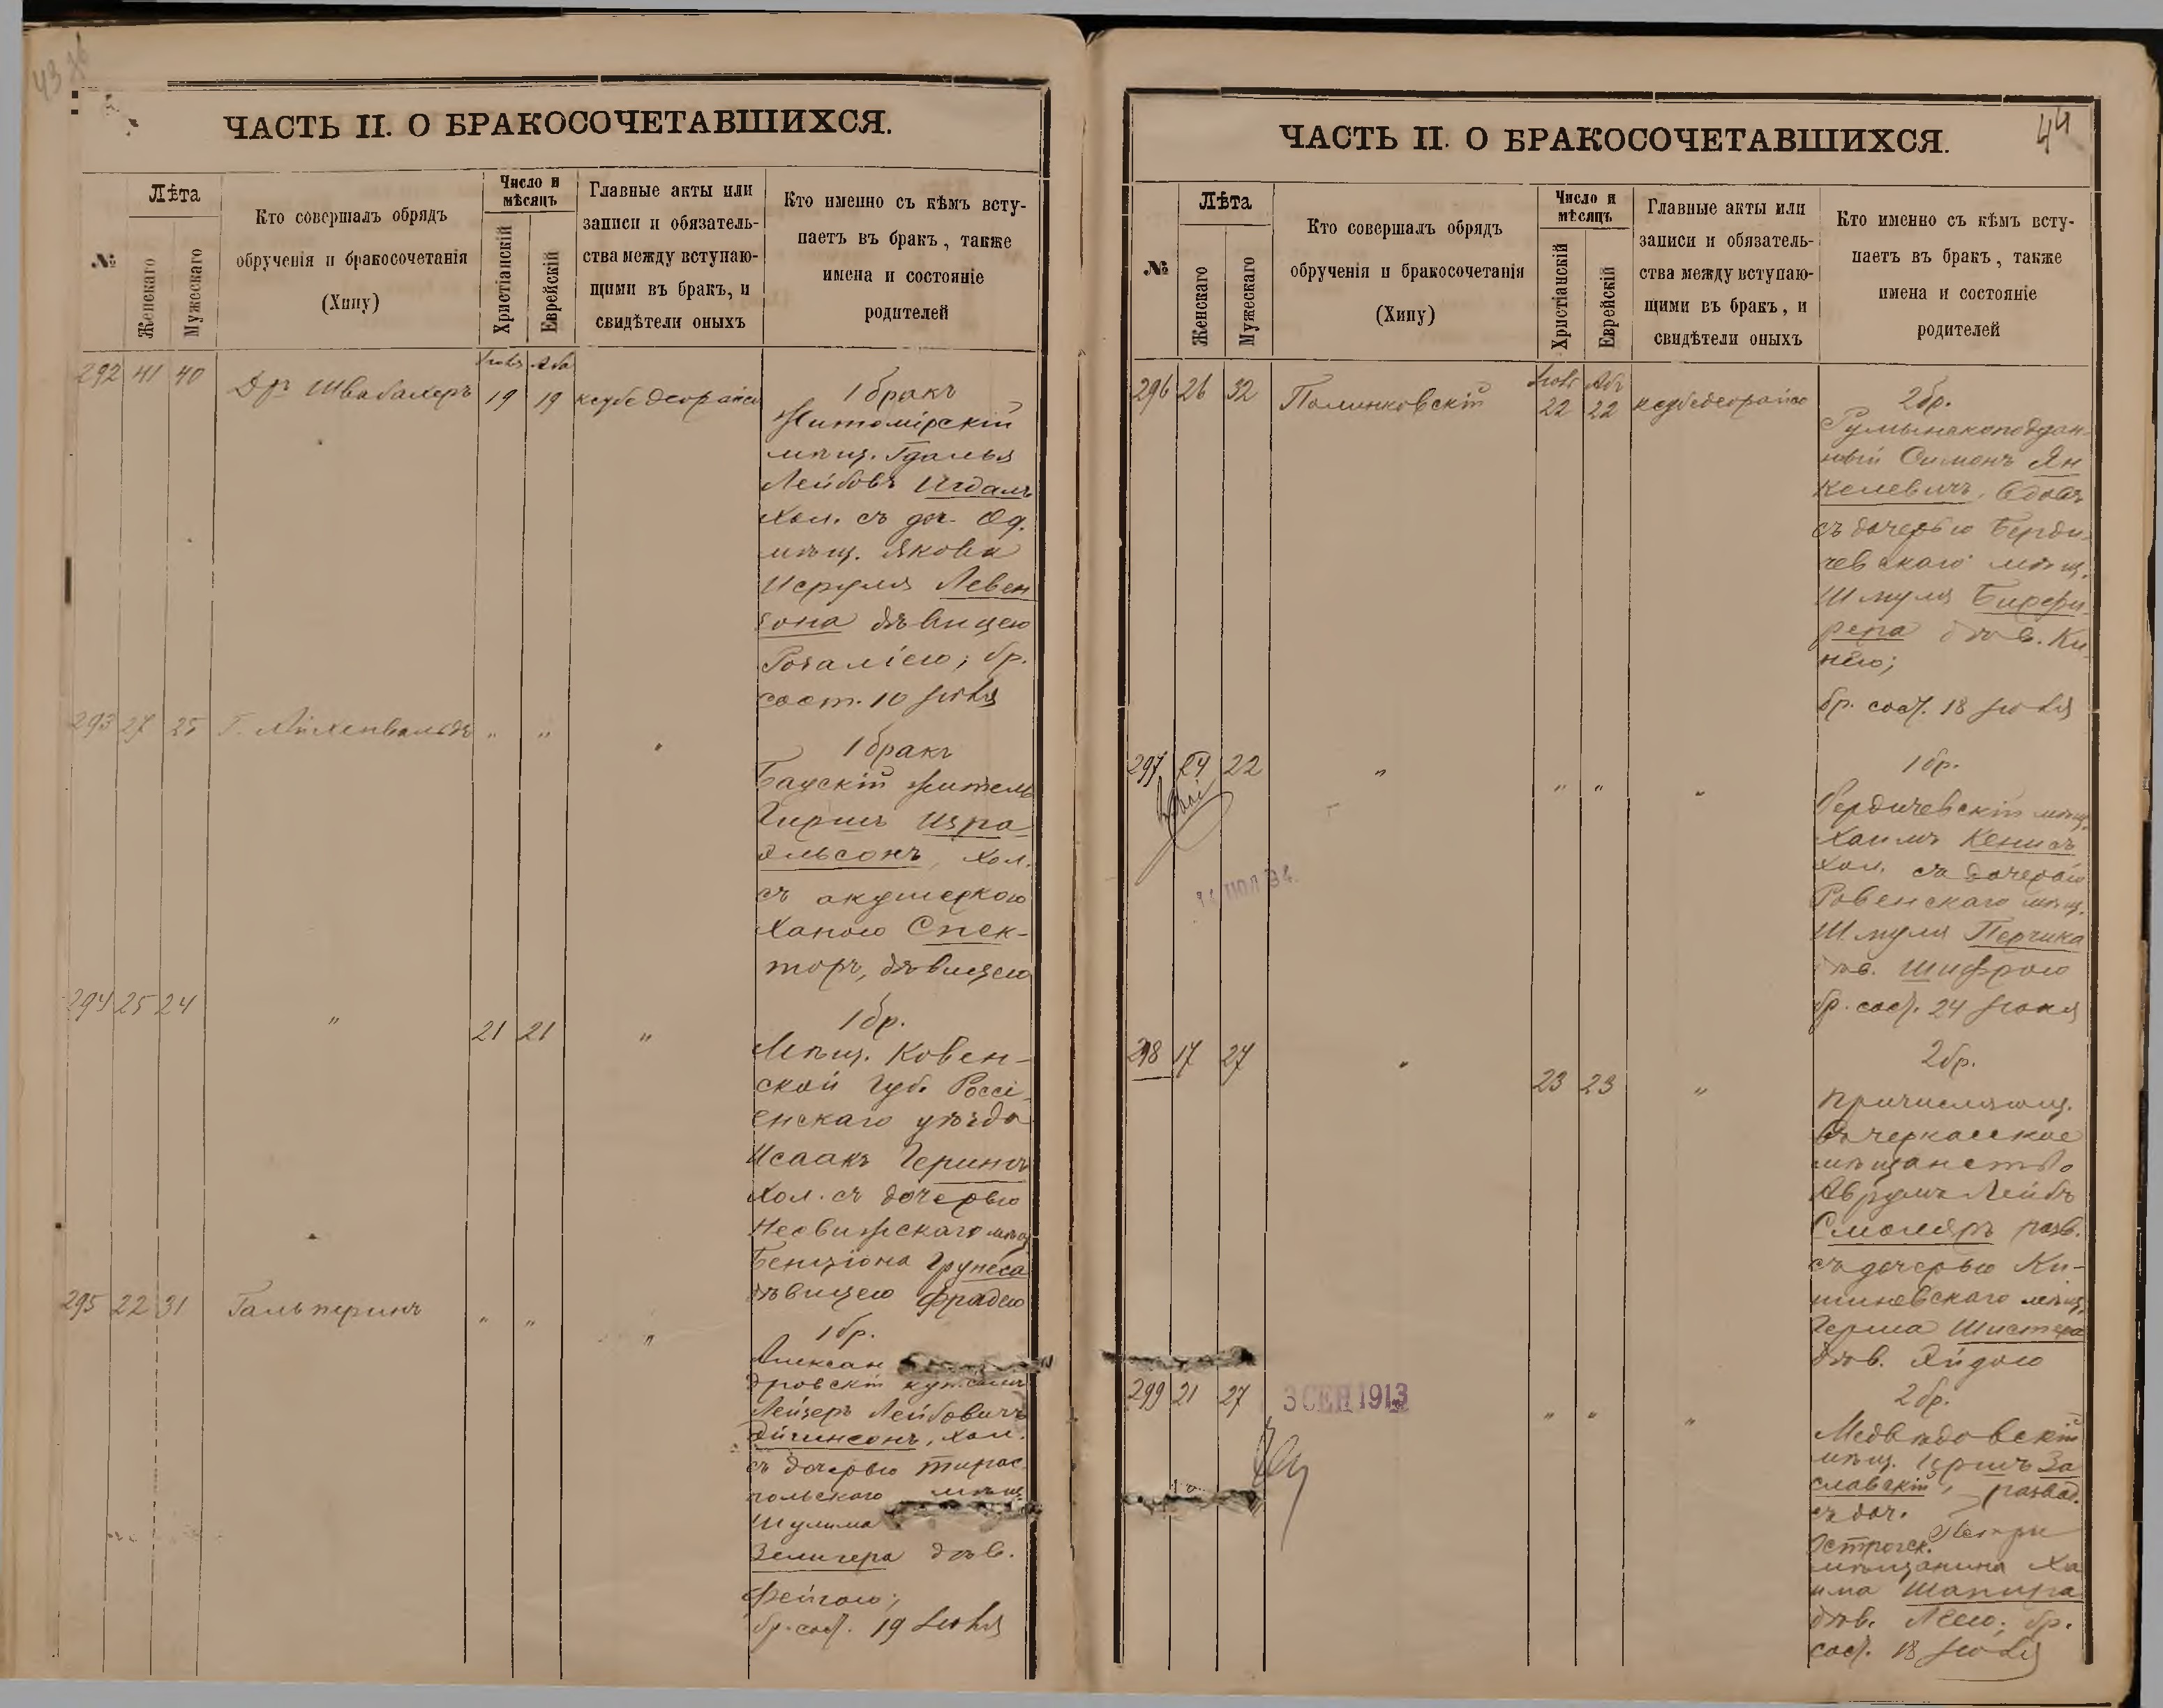 43
ЧАСТЬ II. О БРАКОСОЧЕТАВШИХСЯ.
№
Лѣта
Женскаго
Мужескаго
Кто совершалъ обрядъ
обрученія и бракосочетанія
(Хипу)
Число и
мѣсяцъ
Христіанскій
Еврейскій
Главные акты или
записи и обязатель-
ства между вступаю-
щими въ бракъ, и
свидѣтели оныхъ
Кто именно съ кѣмъ всту-
паетъ въ бракъ, также
имена и состояніе
родителей
292 41 40 Др Швабахеръ Іюля 19 Ава 19
1 бракъ
Житомірскій
мѣщ. Гдалья
Лейбовъ Игдалъ
Хол. съ доч. Од.
мѣщ. Якова
Исруля Левен
зона дѣвицею
Розаліею; бр.
сост. 10 Іюля
293 27 25 " " "
1 бракъ
Баускій житель
Гиршъ Изра-
эльсонъ, хол.
съ акушеркою
Ханою Спек-
торъ, дѣвицею
294 25 24 " 21 21 "
1 бр.
Мѣщ. Ковен-
ской губ. Россі-
енскаго уѣзда
Исаакъ
Хол. съ дочерью
Несвижскаго мѣщ.
Бенціона Грунеса
дѣвицею Фрадею
295 22 31 Гальперинъ " " "
1 бр.
Алексан
дровскій
Лейзеръ Лейбовичъ
хол.
съ дочерью тирас-
польскаго мѣщ.
Шулима
Зелигера дѣв.
Фейгою;
бр. сост. 19 Іюля
44
ЧАСТЬ II. О БРАКОСОЧЕТАВШИХСЯ.
№
Лѣта
Женскаго
Мужескаго
Кто совершалъ обрядъ
обрученія и бракосочетанія
(Хипу)
Число и
мѣсяцъ
Христіанскій
Еврейскій
Главные акты или
записи и обязатель-
ства между вступаю-
щими въ бракъ, и
свидѣтели оныхъ
Кто именно съ кѣмъ всту-
паетъ въ бракъ, также
имена и состояніе
родителей
296 26 32 Полинковскій Іюля 22 Ава 22
2 бр.
Румынскоподдан-
ный Симонъ Ян
келевичъ, вдовъ
съ дочерью Берди-
чевскаго мѣщ.
Шмуля Бирфи-
рера дѣв. Ки-
нею;
бр. сост. 18 Іюля
297 24 22 " " " "
1 бр.
Бердичевскій мѣщ.
Хаимъ Кенисъ
Хол. съ дочерью
Ровенскаго мѣщ.
Шмуля Перчика
дѣв. Шифрою
бр. сост. 24 Іюня
298 17 27 " 23 23 "
2 бр.
Причисляющ.
въ черкасское
мѣщанство
Аврумъ Лейбъ
Смоляръ разв.
съ дочерью Ки-
шиневскаго мѣщ.
Герша Шистера
дѣв. Яйдою
299 21 27 3 СЕН 1913 " " "
2 бр.
Медвѣдовскій
мѣщ. Іршъ За
славскій, развод.
съ доч.
Острогск.
мѣщанина Ха
има Шапира
дѣв. Леею; бр.
сост. 18 Іюля